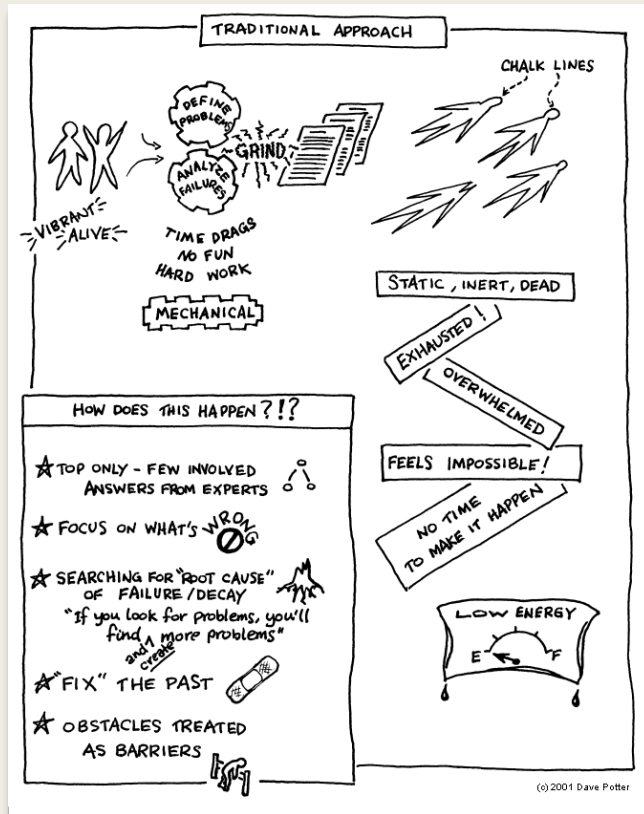 TRADITIONAL APPROACH
CHALK LINES
DEFINE
PROBLEMS
GRIND
ANALYZE
FAILURES
VIBRANT
ALIVE
TIME DRAGS
NO FUN
HARD WORK
MECHANICAL
STATIC, INERT, DEAD
EXHAUSTED!
OVERWHELMED
FEELS IMPOSSIBLE!
NO TIME
TO MAKE IT HAPPEN
LOW ENERGY
E F
HOW DOES THIS HAPPEN?!?
TOP ONLY - FEW INVOLVED
ANSWERS FROM EXPERTS
FOCUS ON WHAT'S WRONG
SEARCHING FOR "ROOT CAUSE"
OF FAILURE/DECAY
"If you look for problems, you'll
find more problems"
and create
"FIX" THE PAST
OBSTACLES TREATED
AS BARRIERS
(c) 2001 Dave Potter